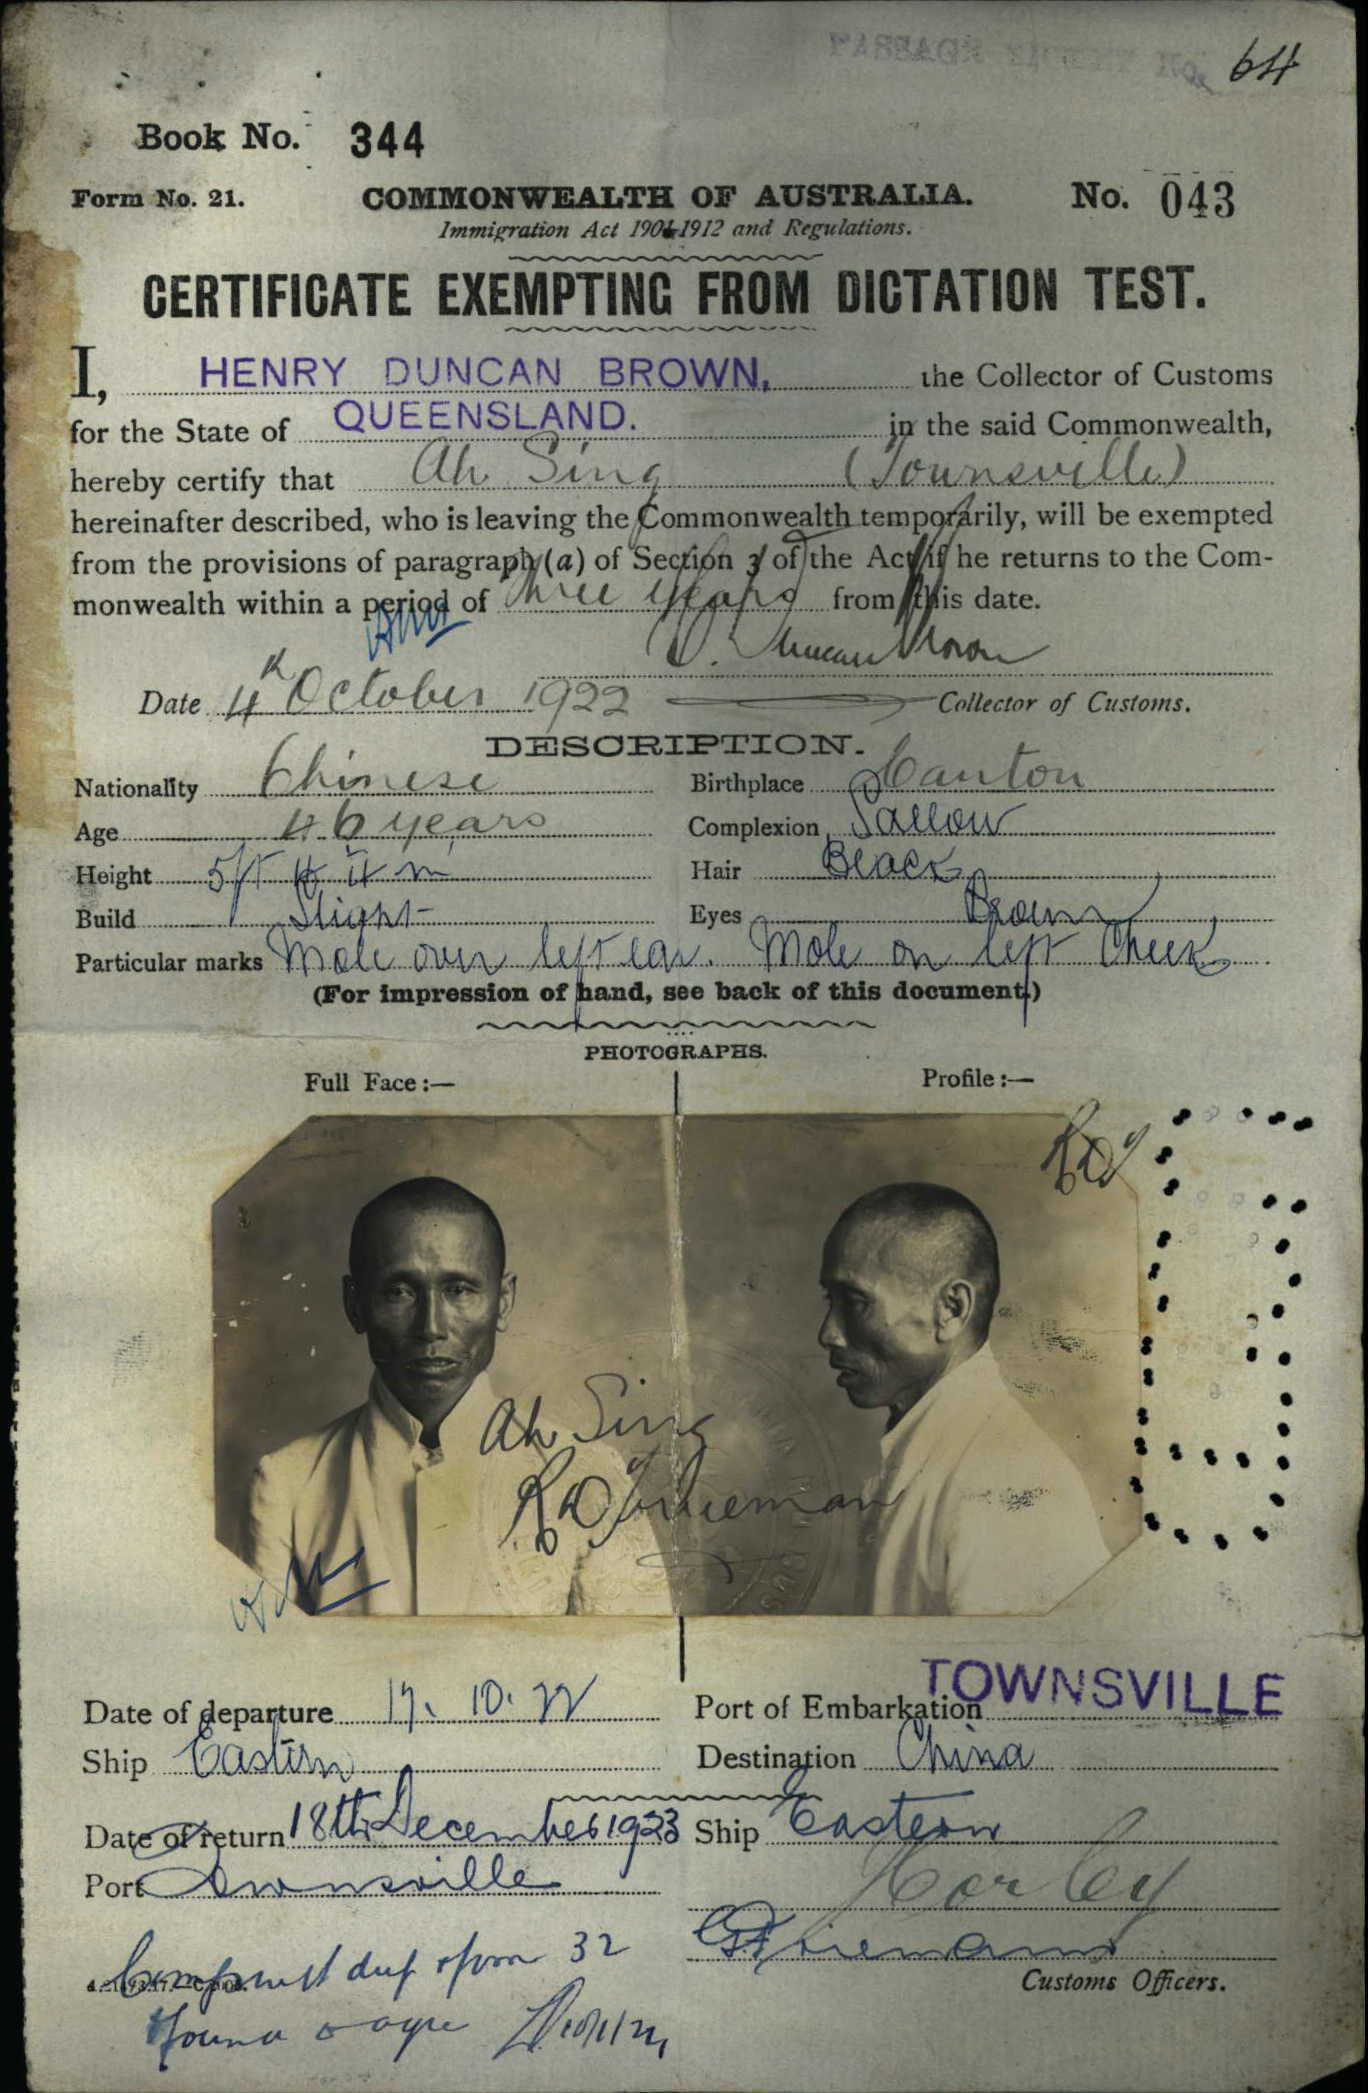 64
Book No. 344
Form No. 21. COMMONWEALTH OF AUSTRALIA. No. 043
Immigration Act 1901-1912 and Regulations.
CERTIFICATE EXEMPTING FROM DICTATION TEST.
I, HENRY DUNCAN BROWN, the Collector of Customs
for the State of QUEENSLAND. in the said Commonwealth,
hereby certify that Ah Sing (Townsville)
hereinafter described, who is leaving the Commonwealth temporarily, will be exempted
from the provisions of paragraph (a) of Section 3 of the Act if he returns to the Com-
monwealth within a period of three years from this date.
H. Duncan Brown
Date 4th October 1922 Collector of Customs.
DESCRIPTION.
Nationality Chinese Birthplace Canton
Age 46 years Complexion Sallow
Height 5ft Hair Black
Build Slight Eyes Brown
Particular marks Mole over left ear. Mole on left Cheek
(For impression of hand, see back of this document.)
PHOTOGRAPHS.
Full Face:— Profile:—
Ah Sing
Date of departure 17. 10. 22 Port of Embarkation TOWNSVILLE
Ship Eastern Destination China
Date of return 18th December 1923 Ship Eastern
Port Townsville
32
Customs Officers.